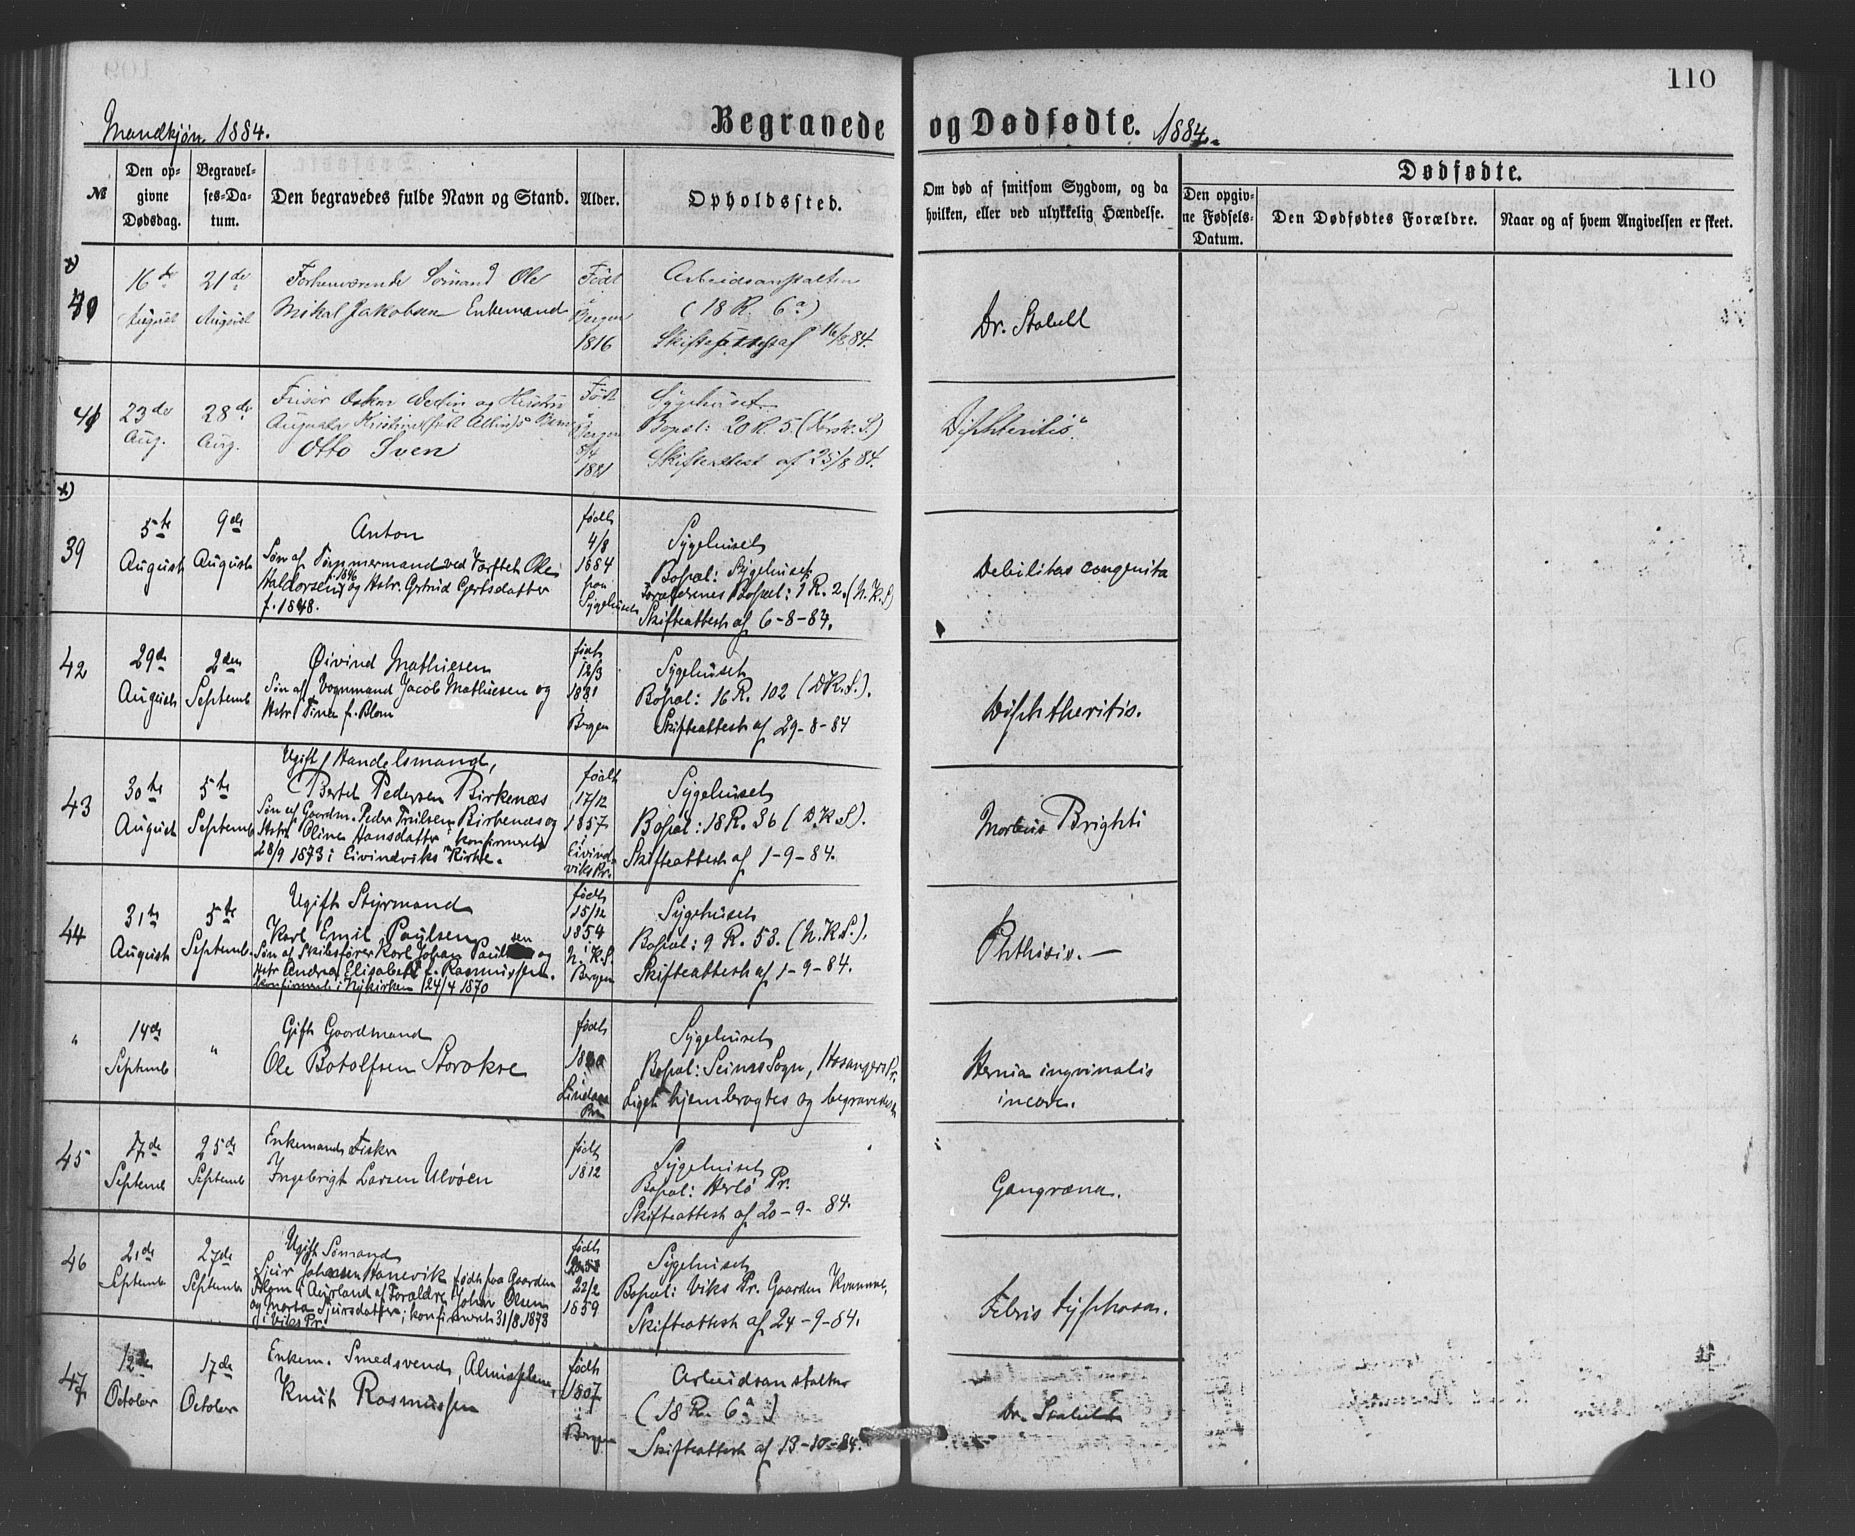 110
Mandkjøn 1884.
Begravede og Dødfødte. 1884.
№
Den opgivne Dødsdag.
Begravelses-Datum.
Den begravedes fulde Navn og Stand.
Alder.
Opholdssted.
Om død af smitsom Sygdom, og da hvilken, eller ved ulykkelig Hændelse.
Dødfødte.
Den opgivne Fødsels-Datum.
Den Dødfødtes Forældre.
Naar og af hvem Angivelsen er skeet.
x)
40
16de August
21de August
Forhenværende Sømand Ole
Mikal Jakobsen Enkemand
Født i Bergen 1816
Arbeidsanstalten
(18 R. 6a)
Skifteattest af 16/8 84.
Dr. Stabell
41
23de Aug.
28de Aug.
Frisør Oskar og Hustru
Augusta
Otto Sven
Født i Bergen
Sygehuset
Bopæl: 20 R. 5 (Korsk. S.)
Skifteattest af 25/8 84.
Diphteritis.
x)
39
5te August
9de August
Anton
Søn af Tømmermand ved Værftet Ole
Haldorsen f. 1846 og Hstr. Gertrud Gertsdatter
f. 1848.
født 4/8 1884 paa Sygehuset
Sygehuset
Bopæl: Sygehuset
Forældrenes Bopæl: 1 R. 2. (N.K.S)
Skifteattest af 6-8-84.
Debilitas congenita
42
29de August
2den Septemb
Øivind Mathiesen
Søn af Vognmand Jacob Mathiesen og
Hstr Tina f. Blom
født 12/3 1881 i Bergen
Sygehuset
Bopæl: 16 R. 102 (D.K.S.).
Skifteattest af 29-8-84
Diphtheritis.
43
30te August
5te Septemb
Ugift Handelsmand,
Bertel Pedersen Birkenæs
Søn af Gaardm. Peder Birkenæs og
Hstr Oline Hansdatter, konfirmeret
28/9 1873 i Eivindviks Kirke.
født 17/12 1857 i Eivindviks Pr.
Sygehuset
Bopæl: 18 R. 36 (D.K.S).
Skifteattest af 1-9-84.
Morbus Brighti
44
31te August
5te Septemb.
Ugift Styrmand
Karl Emil Paulsen
Søn af Skibsfører Karl Johan Paulsen og
Hstr Andrea Elisabeth f. Rasmussen.
konfirmeret i Nykirken 24/4 1870
født 15/12 1854 i N.K.S. Bergen
Sygehuset
Bopæl: 9 R. 53. (N.K.S.).
Skifteattest af 1-9-84.
Phthisis. —
"
14de Septemb
"
Gift Gaardmand
Ole Botolfsen Storokse
født Lindaas Pr.
Sygehuset
Bopæl: Seims Sogn, Hosangers Pr.
Liget hjembragtes og begravedes
Hernia ingvinalis
incarc.
45
17de Septemb
25de Septemb
Enkemand Fisker
Ingebrigt Larsen Ulvøen
født 1812
Sygehuset
Bopæl: Herlø Pr.
Skifteattest af 20-9-84.
Gangræna.
46
21de Septemb
27de Septemb
Ugift Sømand
Sjur Johansen Hanevik født paa Gaarden
i Aurland af Forældre Johan Olsen
og Marta Sjursdatter; konfirmeret 31/8 1873
i Viks Pr.
født 22/2 1859
Sygehuset
Bopæl: Viks Pr. Gaarden
Skifteattest af 24-9-84.
Febris typhosa.
47
12te October
17de October
Enkem. Smedsvend, Almisselem,
Knut Rasmussen
født 1807 i Bergen
Arbeidsanstalten
(18 R. 6a)
Skifteattest af 13-10-84.
Dr. Stabell